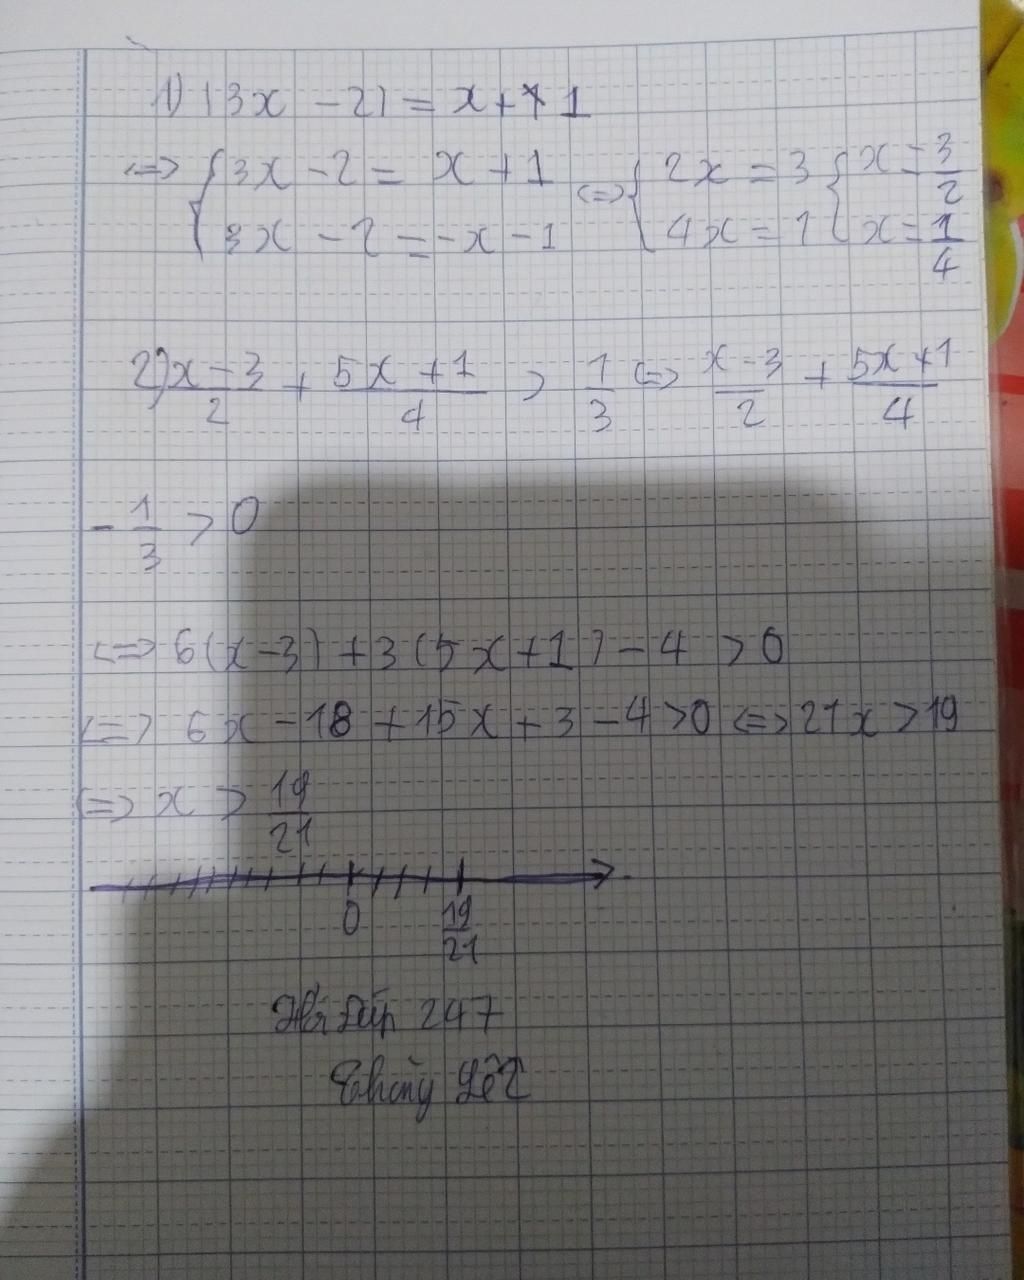 1) |3x - 2| = x + 1
<=> { 3x - 2 = x + 1 <=> { 2x = 3 { x = 3/2
3x - 2 = -x - 1 4x = 1 x = 1/4
2) x - 3/2 + 5x + 1/4 > 1/3 <=> x - 3/2 + 5x + 1/4
- 1/3 > 0
<=> 6(x - 3) + 3(5x + 1) - 4 > 0
<=> 6x - 18 + 15x + 3 - 4 > 0 <=> 21x > 19
<=> x > 19/21
0 19/21
Hỏi Đáp 247